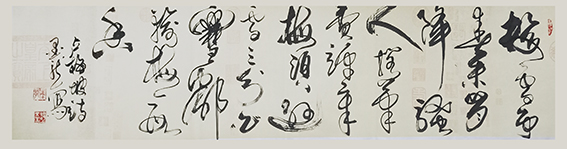 梅雪争
春未肯
降骚
人搁笔
费评章
梅须逊
雪三分白
雪却
输梅一段
香
卢梅坡诗